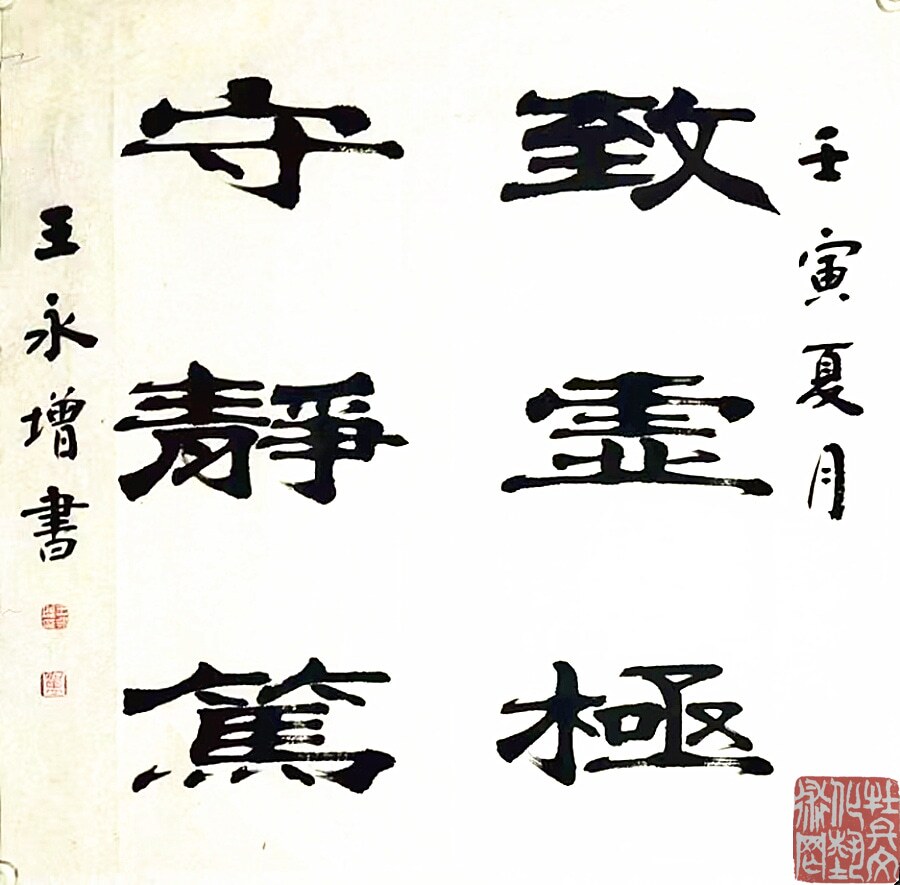 壬寅夏月
致虛極
守靜篤
王永增書